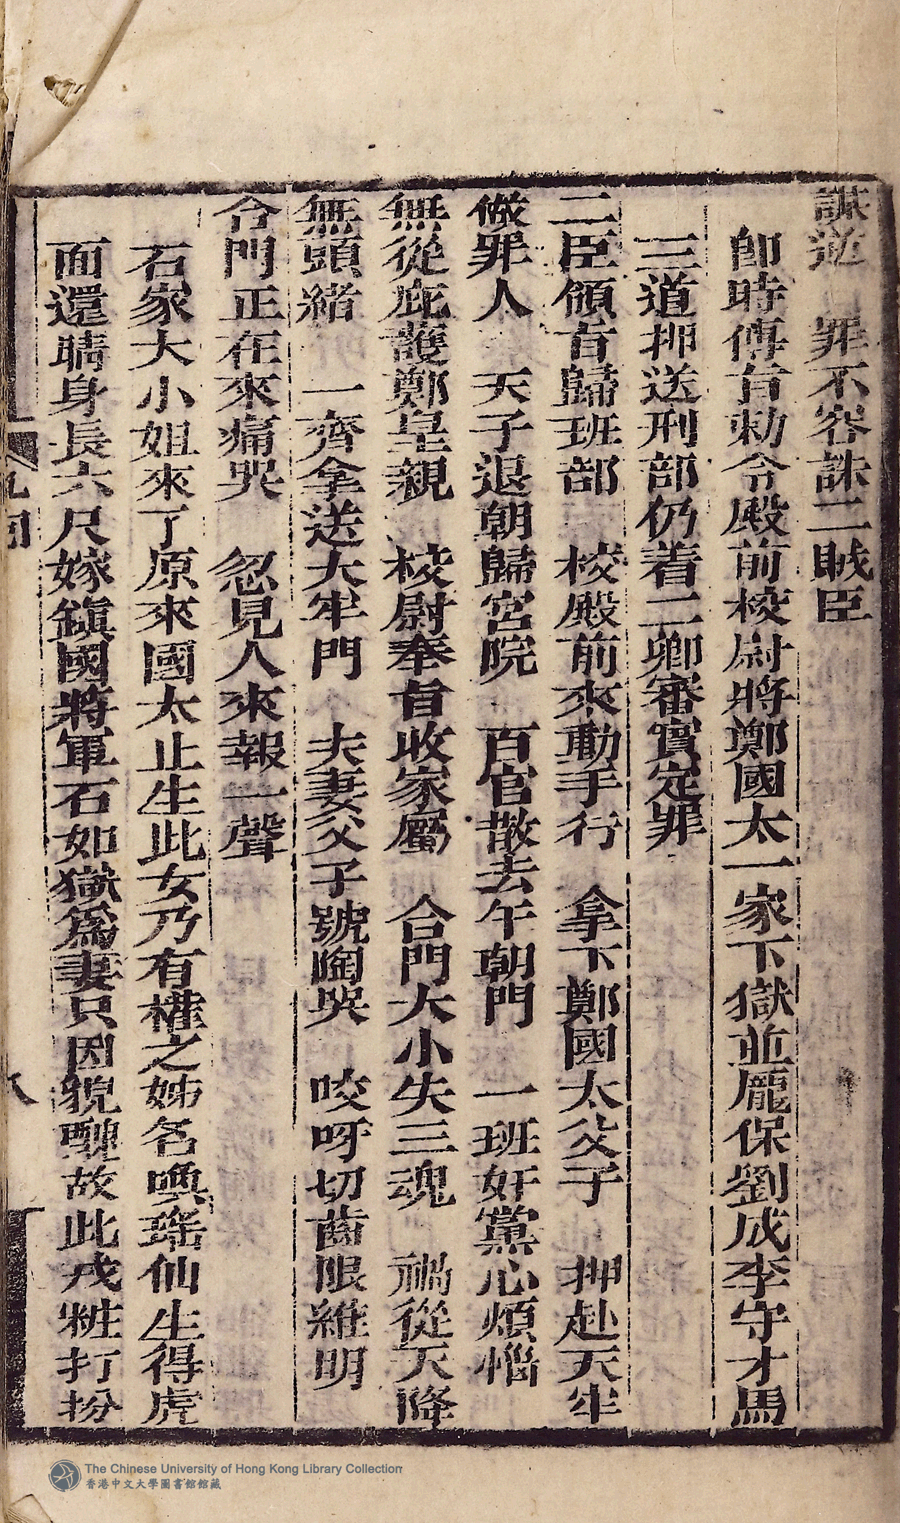 謀逆 罪不容誅二賊臣
即時傳旨勅令殿前校尉將鄭國太一家下獄並龐保劉成李守才馬
三道押送刑部仍着二卿審實定罪
二臣領旨歸班部 校殿前來動手行 拿下鄭國太父子 押赴天牢
做罪人 天子退朝歸宮院 百官散去午朝門 一班奸黨心煩惱
無從庇護鄭皇親 校尉奉旨收家屬 合門大小失三魂 禍從天降
無頭緒 一齊拿送大牢門 夫妻父子號啕哭 咬呀切齒限維明
合門正在來痛哭 忽見人來報一聲
石家大小姐來了原來國太止生此女乃有權之姊名喚瑤仙生得虎
面還睛身長六尺嫁鎮國將軍石如獄為妻只因貌醜故此戎粧打扮
回
八
The Chinese University of Hong Kong Library Collection
香港中文大學圖書館館藏